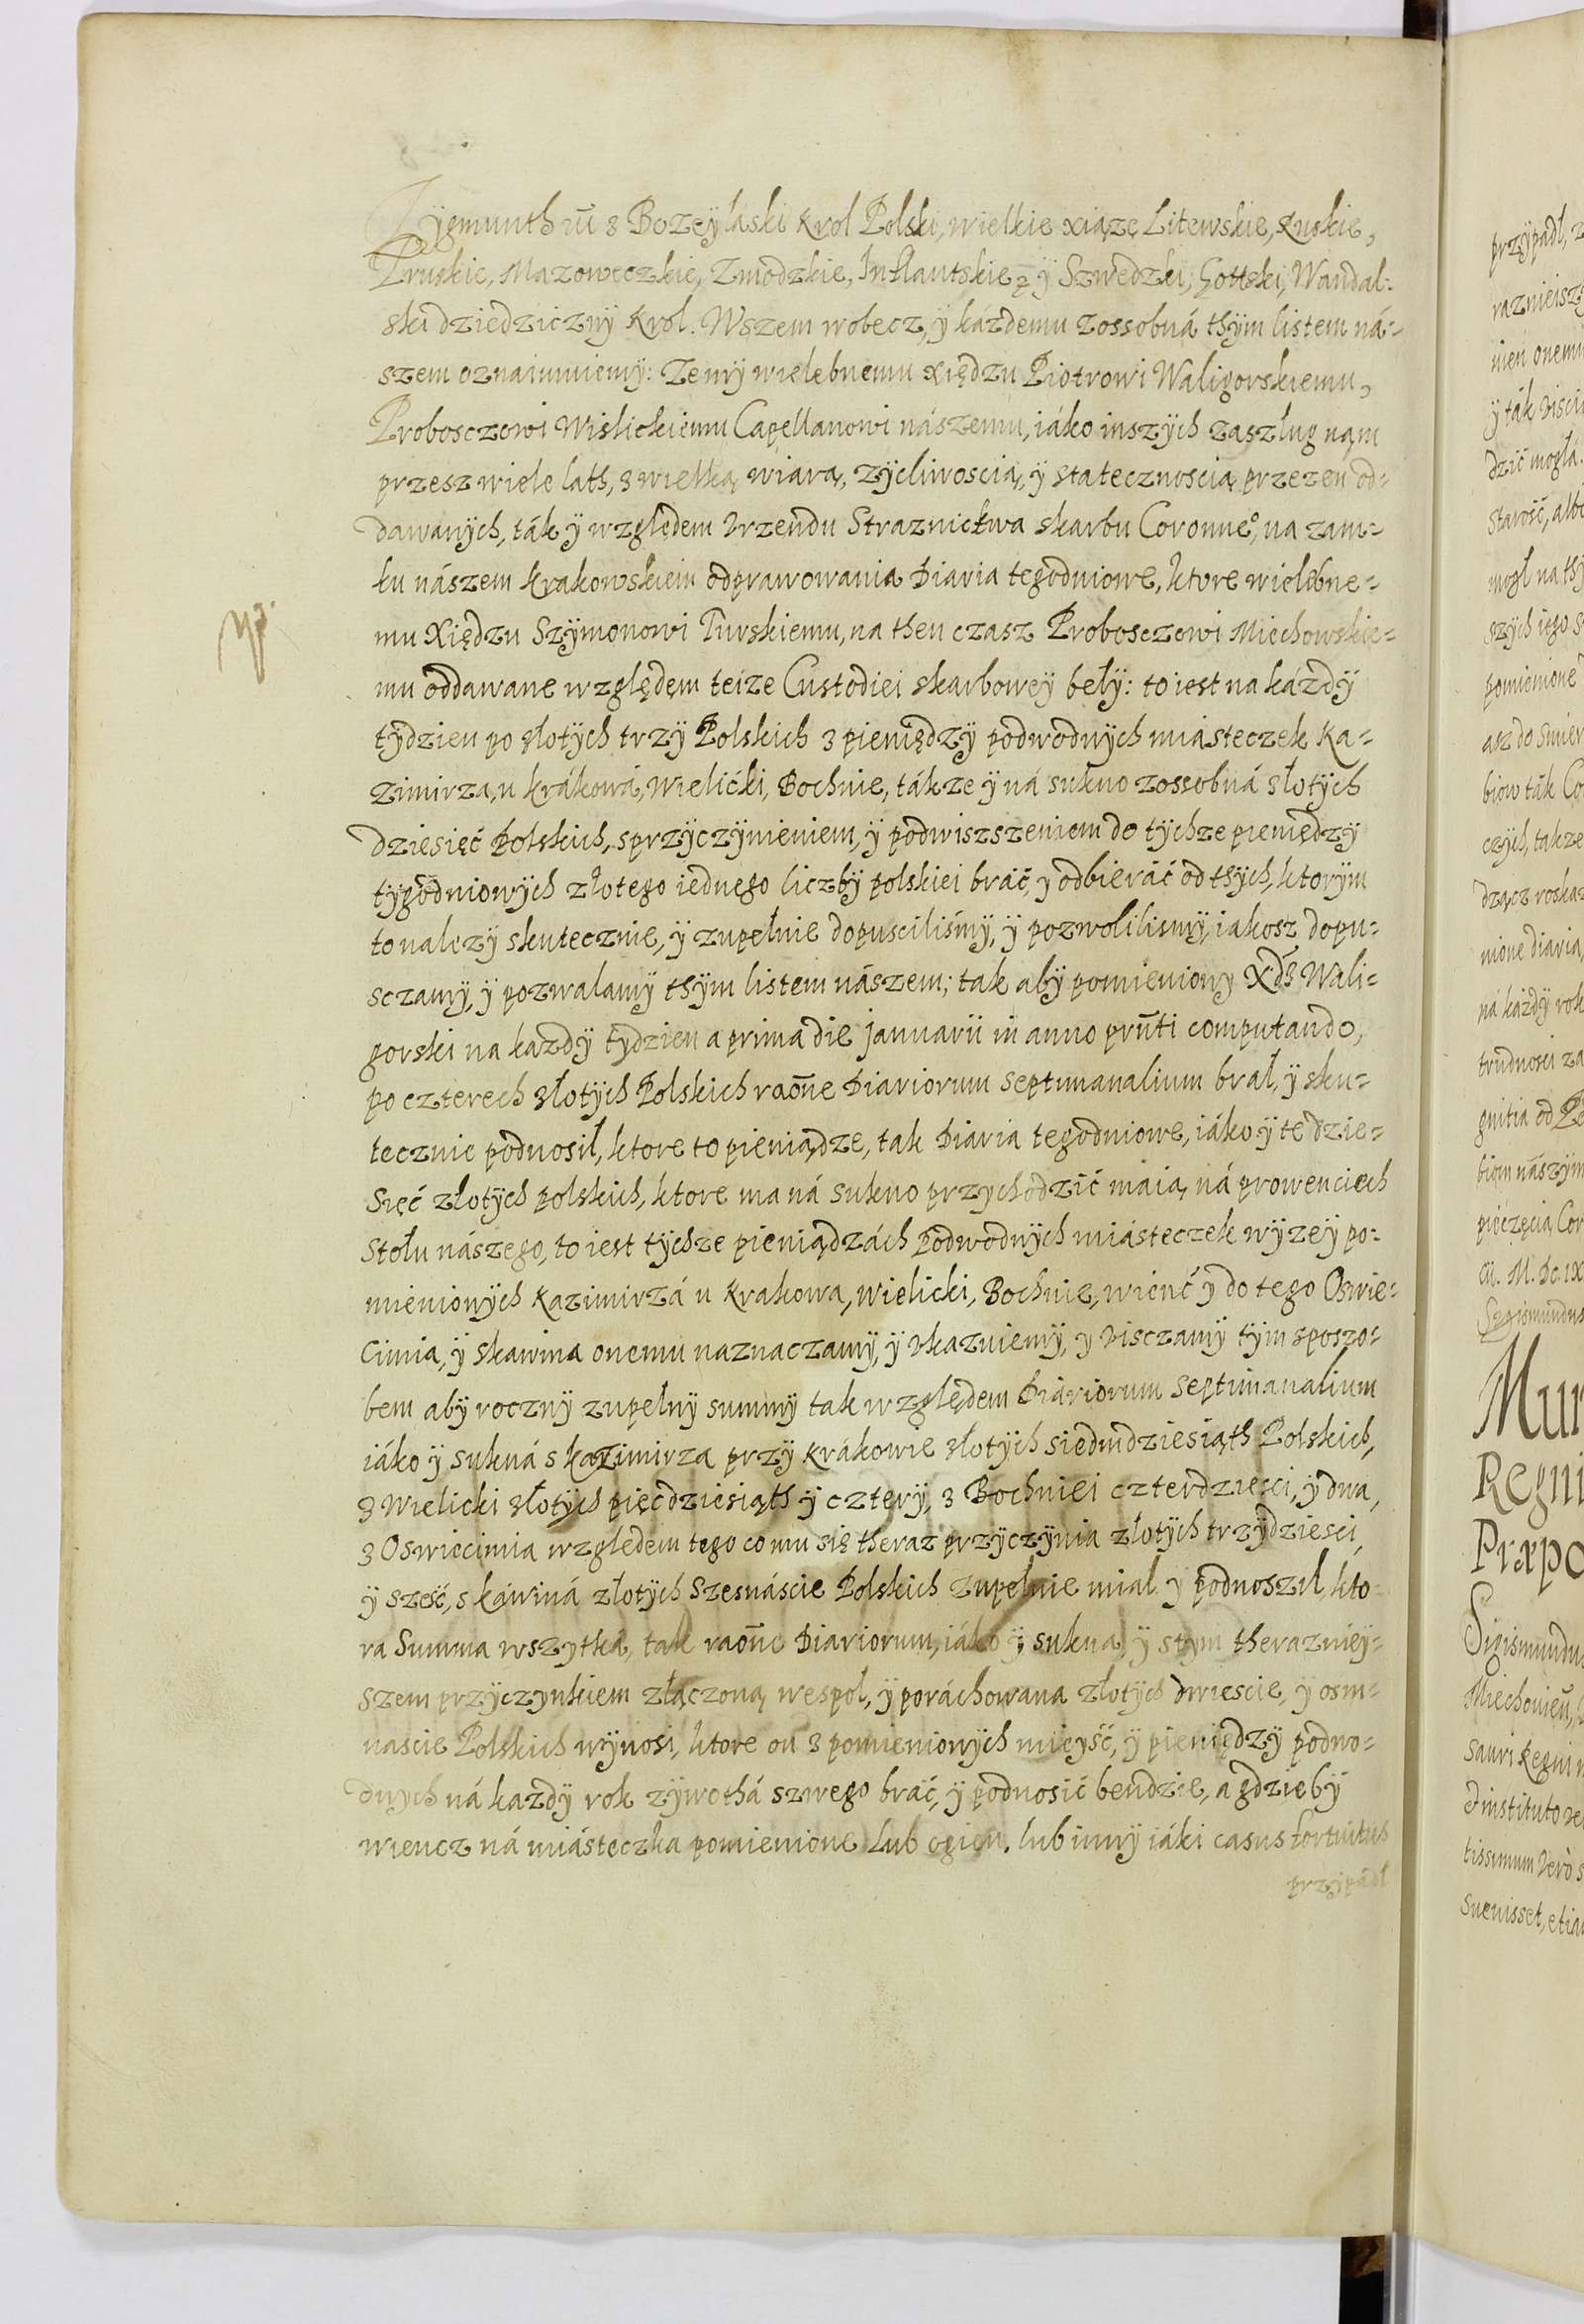 Zÿgmunth III 3 Bozeÿ łaski Krol Polski, wielkie xiąze Litewskie, Ruskie,
Pruskie, Mazoweczkie, Zmodzkie, Inflantskie ÿ Szwedzki, Gottski, Wandal-
ski dziedzicznÿ Krol. Wszem wobecz, ÿ kázdemu zossobná thÿm listem ná-
szem oznaimuiemÿ: Ze mÿ wielebnemu xiędzu Piotrowi Waligorskiemu,
Probosczowi Wislickiemu Capellanowi nászemu, iáko inszÿch zaszług nąm
przesz wiele lath, 3 wielką wiarą, zÿcliwoscią, ÿ statecznoscią przezen od-
dawanÿch, ták ÿ względem Vrzendu Straznictwa skarbu Coronneº, na zam-
ku nászem Krakowskiem odprawowania Diaria tegodniowe, ktore wielebne-
mu Xiędzu Szÿmonowi Turskiemu, na then czasz Probosczowi Miechowskie-
mu oddawane względem teize Custodiei skarbowey belÿ: to iest na kázdÿ
tÿdzien po złotÿch trzÿ Polskich 3 pieniędzÿ podwodnÿch miásteczek Ka-
zimirza, u Krákowá, Wielićki, Bochnie, tákze ÿ ná sukno zossobná złotÿch
dziesięć Polskich, sprzÿczÿnieniem, ÿ podwiszszeniem do tÿchze pieniędzÿ
tÿgodniowÿch złotego iednego liczbÿ polskiei bráć, y odbieráć od thÿch, ktorÿm
to nalezÿ skutecznie, ÿ zupełnie dopuscilismÿ, ÿ pozwolilismÿ, iakosz dopu-
sczamÿ, ÿ pozwalamÿ thÿm listem nászem; tak abÿ pomieniony Xdz Wali-
gorski na kazdÿ tÿdzien a prima die Januarii in anno prnti computando,
po czterech złotÿch Polskich raone Diariorum septimanalium brał, ÿ sku-
tecznie podnosił, ktore to pieniądze, tak Diaria tegodniowe, iáko ÿ te dzie-
sięć złotÿch polskich, ktore ma ná sukno przychodzić máią, ná prowenciech
stołu nászego, to iest tÿchze pieniądzách Podwodnÿch miásteczek wÿzeÿ po-
mienionÿch Kazimirzá u Krakowa, wielicki, Bochnie, wienć y do tego Oswie-
cimia, ÿ skawina onemu naznaczamÿ, ÿ vkazuiemÿ, y visczamÿ tÿm sposzo-
bem abÿ rocznÿ zupełnÿ summy tak względem Diariorum septimanalium
iáko ÿ sukná s Kazimirza przÿ Krákowie złotÿch siedmdziesiąth Polskich,
3 Wielicki złotÿch pięćdziesiąth ÿ czterÿ, 3 Bochniei czterdziesci, ÿ dwa,
3 Oswiecimia względem tego co mu się theraz przÿczÿnia złotÿch trzÿdziesci,
ÿ szesć, s Káwiná złotÿch szesnáscie Polskich zupełnie miał y podnosził, kto-
ra Summa wszytká, tak raone Diariorum, iáko ÿ sukna, ÿ stÿm theraznieÿ-
szem przÿczynkiem złączoną wespoł, ÿ poráchowana złotÿch dwiescie, ÿ osm-
nascie Polskich wÿnosi, ktore on 3 pomienionÿch mieÿść, ÿ pieniędzÿ podwo-
dnych ná kazdÿ rok zÿwothá szwego bráć, ÿ podnosić bendzie, a gdziebÿ
wiencz ná miásteczka pomienione lub ogien, lub innÿ iáki casus fortuitus
przÿpadł
przÿpadł, z
razniejszy
nien onemu
ÿ ták viscic
dzić mogła.
starość, albo
mogł na thÿ
szÿch iego s
pomienione
asz do smier
biow ták Co
czÿch, takze
dzącz roskaz
nione diaria,
ná kazdÿ rok
trudnosci za
gnitia od Po
biom nászÿm
pieczęcią Cor
Sigismundus
Mun
Regni
Præpo
Sigismundus
Miechovien,
sauri Regni
tissimum vero s
suevisset, etia